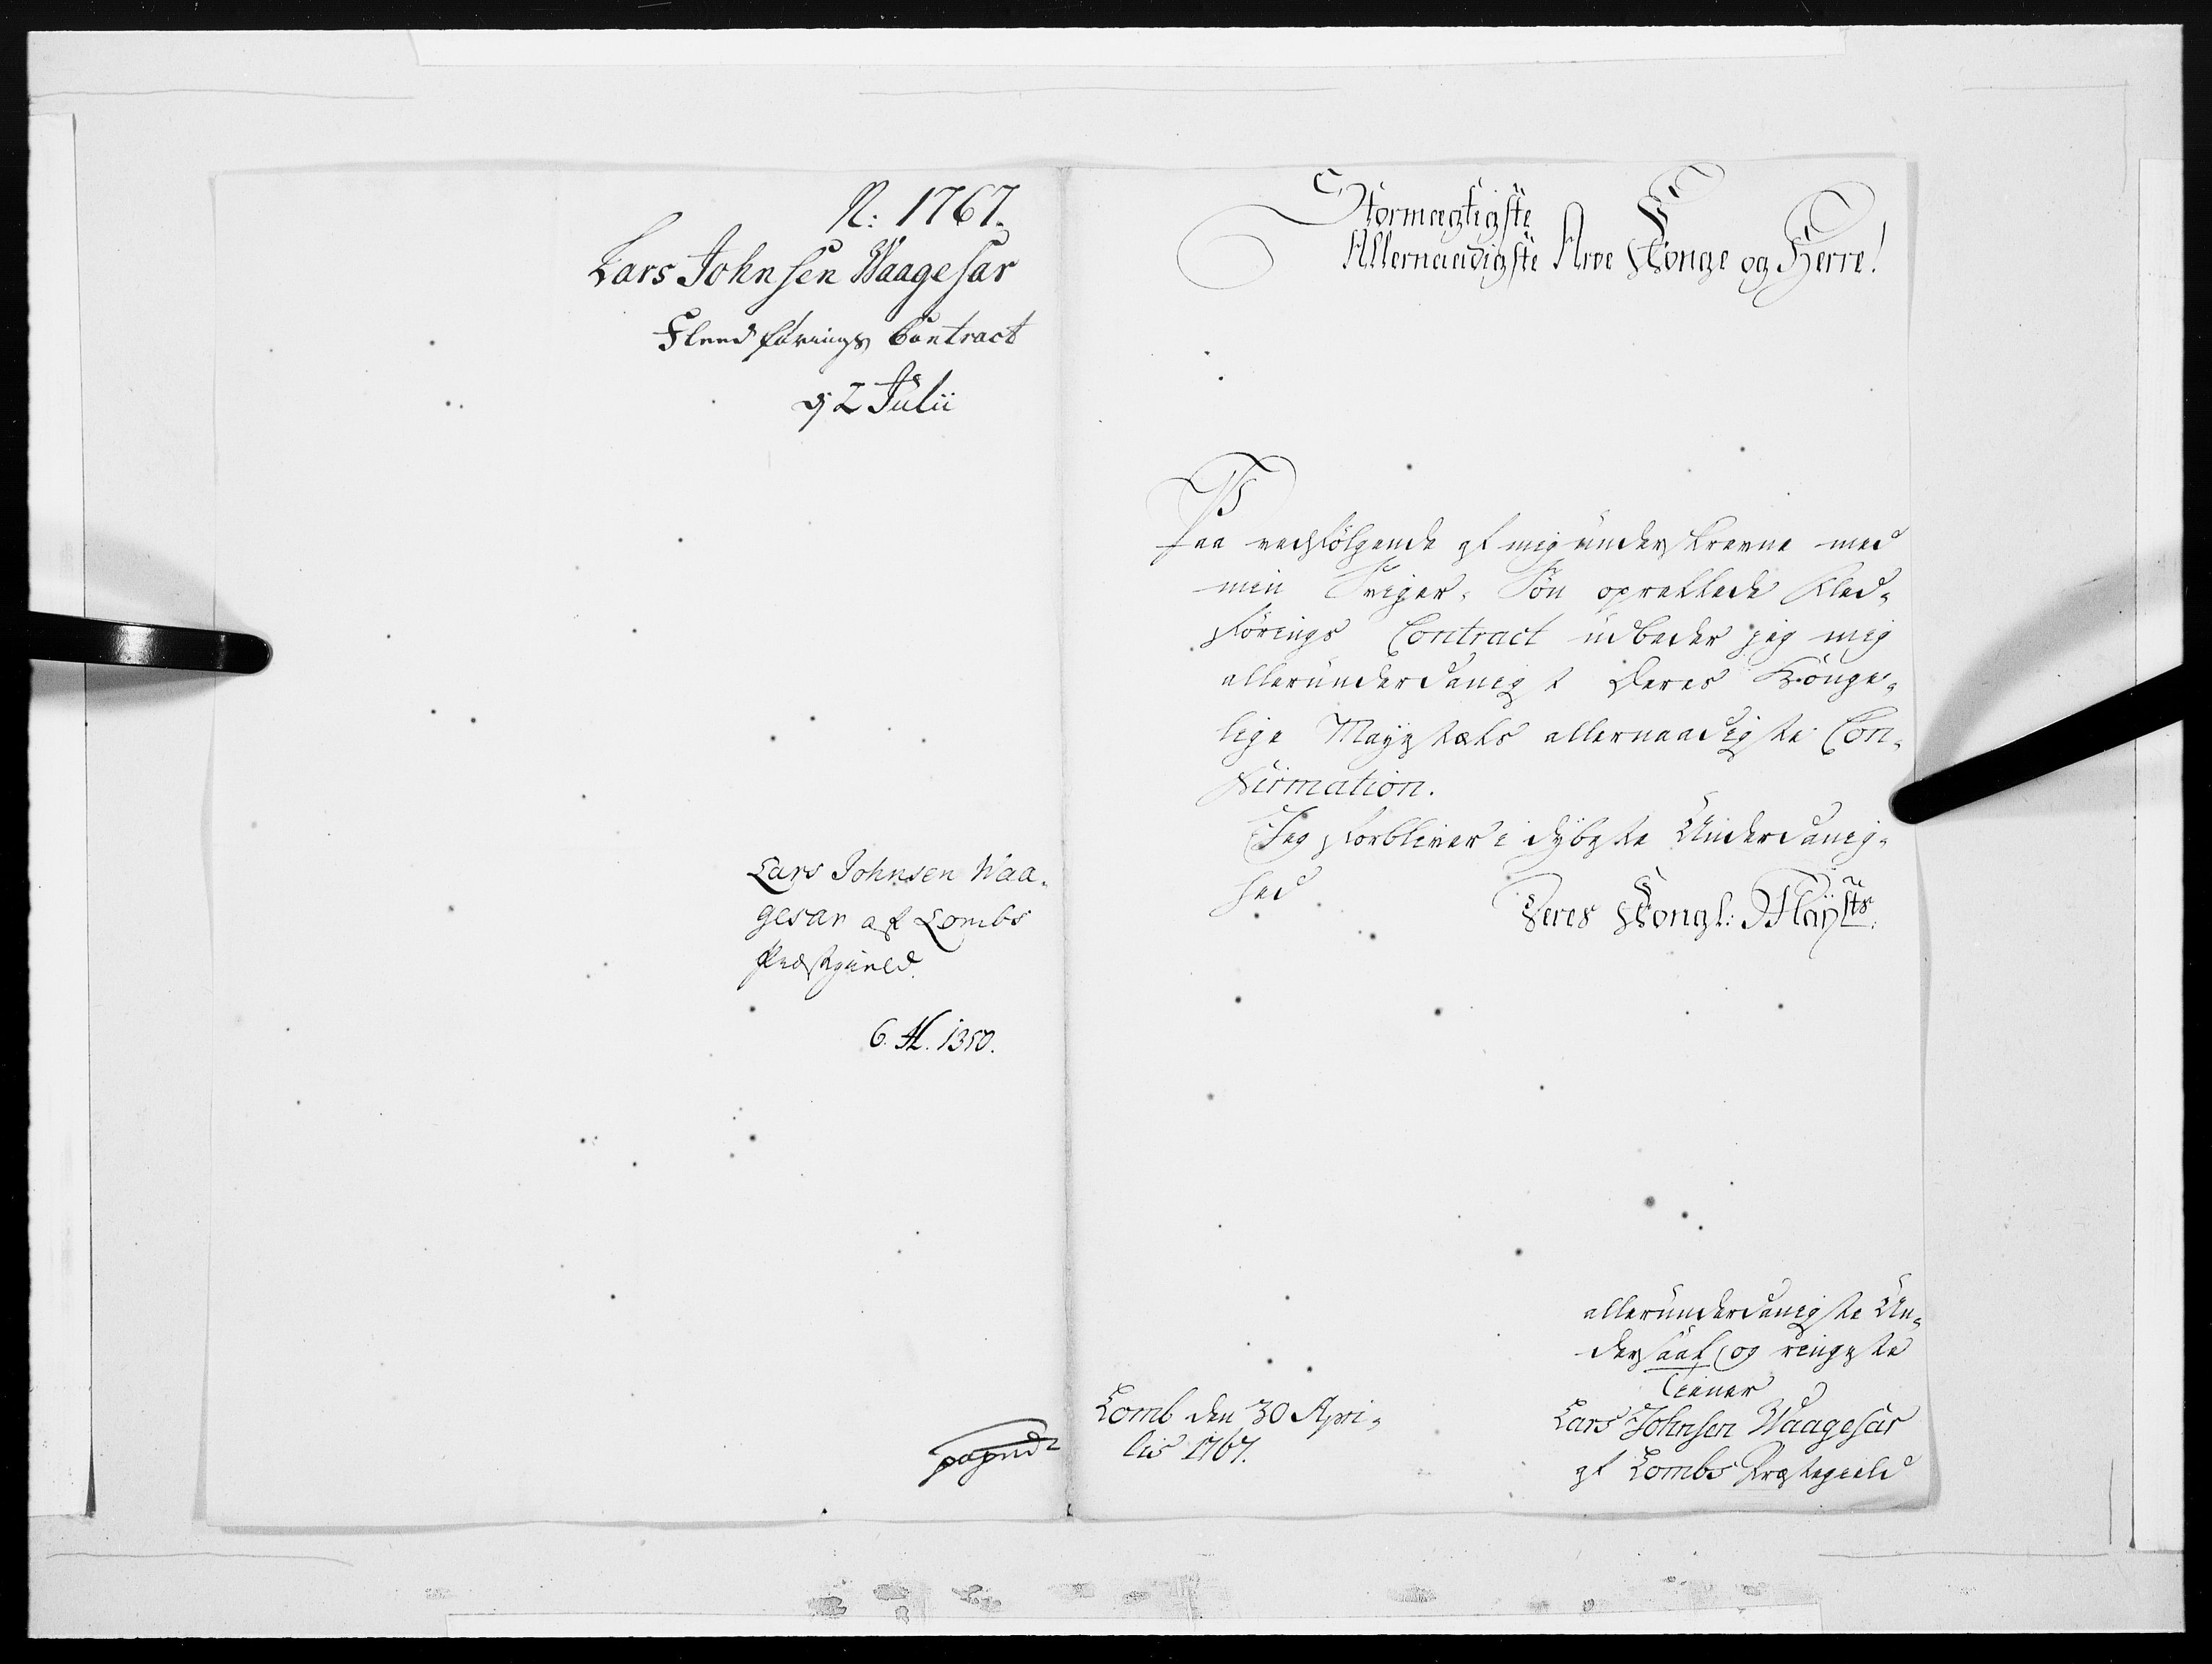 N: 1767.
Lars Johnsen Waagesar
Fledførings Contract
d. 2 Julii
Lars Johnsen Waa-
gesar af Lombs
Præstgield.
6. A. 1350.
Stormægtigste
Allernaadigste Arve Konge og Herre!
Paa vedfölgende af mig underskrevne med
min Sviger-Sön oprettede Fled-
förings Contract udbeder jeg mig
allerunderdanigst Deres Konge-
lige Mayestæts allernaadigste Con-
firmation.
Jeg forbliver i dybeste Underdanig-
hed
Deres Kongl: Mayts.
allerunderdanigste Un-
dersaat og ringeste
Tiener
Lars Johnsen Waagesar
af Lombs Præstegield
Lomb den 30 Apri-
lis 1767.